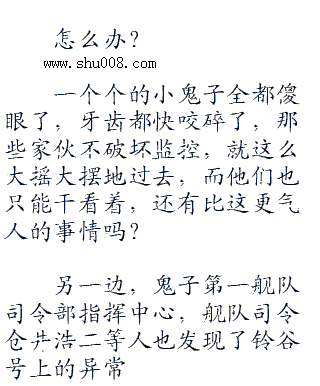 怎么办？
www.shu008.com
一个个的小鬼子全都傻
眼了，牙齿都快咬碎了，那
些家伙不破坏监控，就这么
大摇大摆地过去，而他们也
只能干看着，还有比这更气
人的事情吗？
另一边，鬼子第一舰队
司令部指挥中心，舰队司令
仓井浩二等人也发现了铃谷
号上的异常